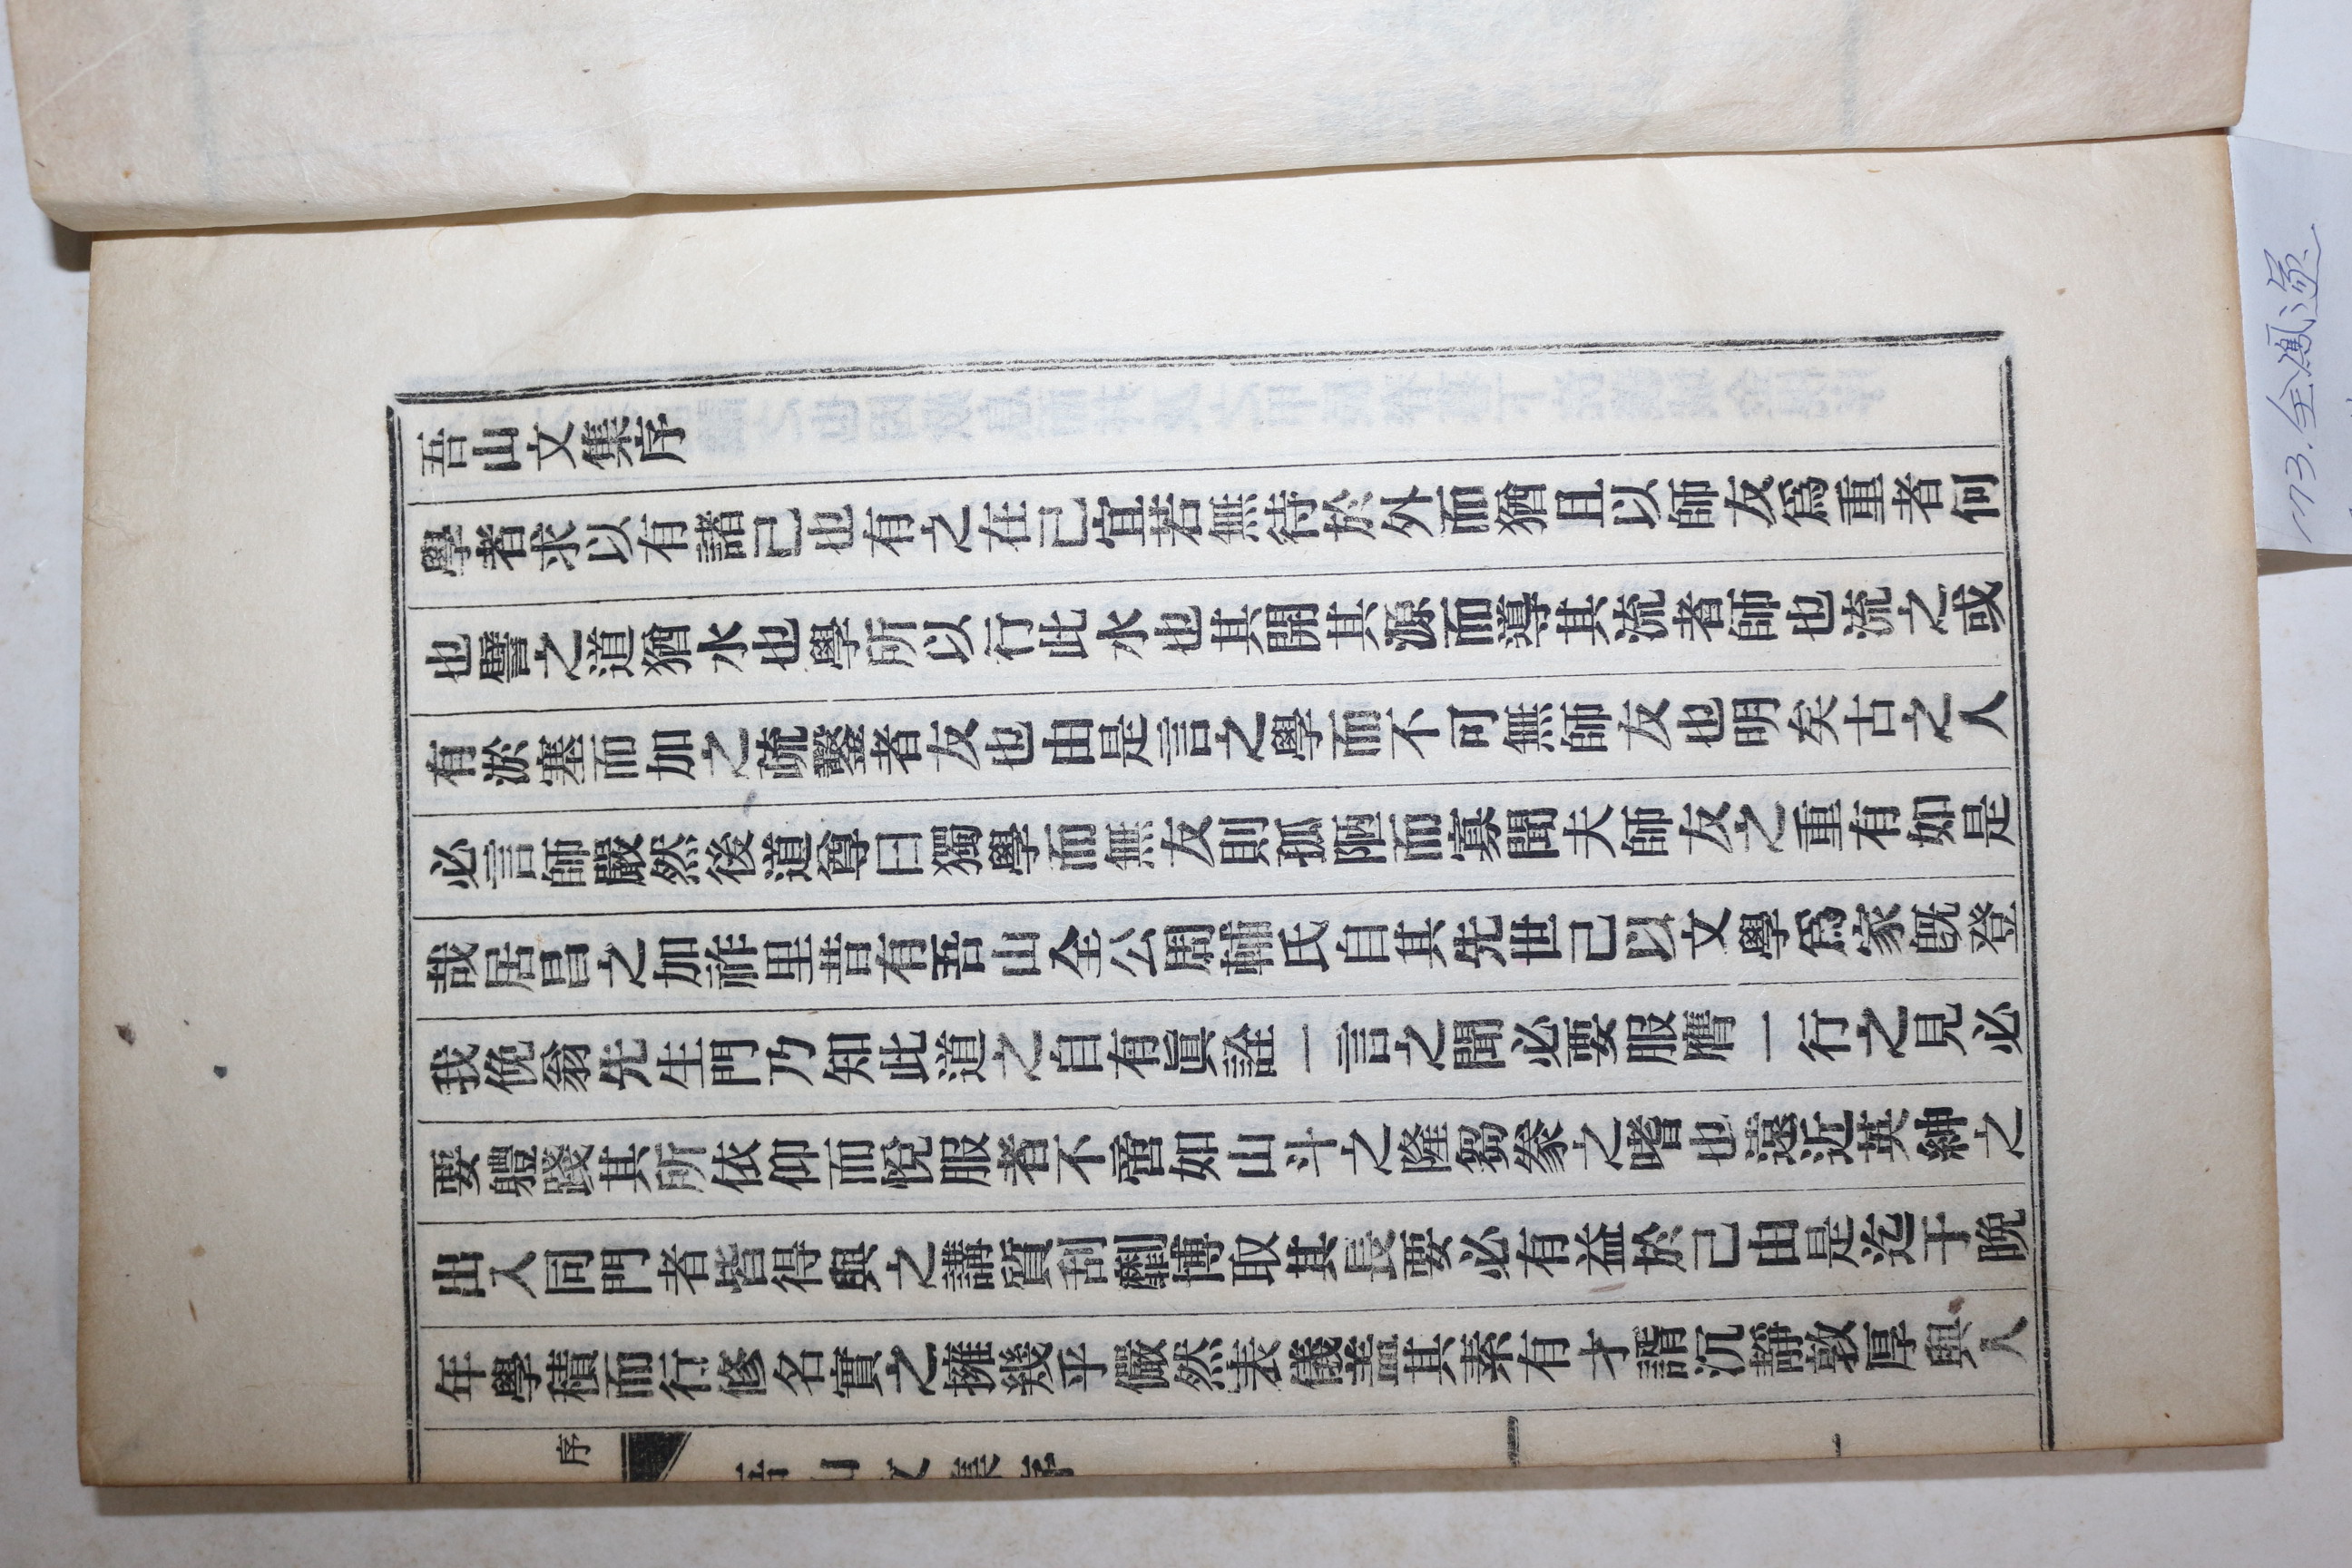 吾山文集序
學者求以有諸己也有之在己宜若無待於外而猶且以師友爲重者何
也譬之道猶水也學所以行此水也其開其源而導其流者師也流之或
有淤塞而加之疏鑿者友也由是言之學而不可無師友也明矣古之人
必言師嚴然後道尊曰獨學而無友則孤陋而寡聞夫師友之重有如是
哉居昌之加祚里昔有吾山全公周輔氏自其先世已以文學爲家旣登
我俛翁先生門乃知此道之自有眞詮一言之聞必要服膺一行之見必
要軆踐其所依仰而悅服者不啻如山斗之隆芻豢之嗜也遠近英紳之
出入同門者皆得與之講質刮劘博取其長要必有益於己由是迄于晩
年學積而行修名實之擁幾乎儼然表儀盖其素有才諝沉靜敦厚與人
序
吾山文集序
173.全馮源